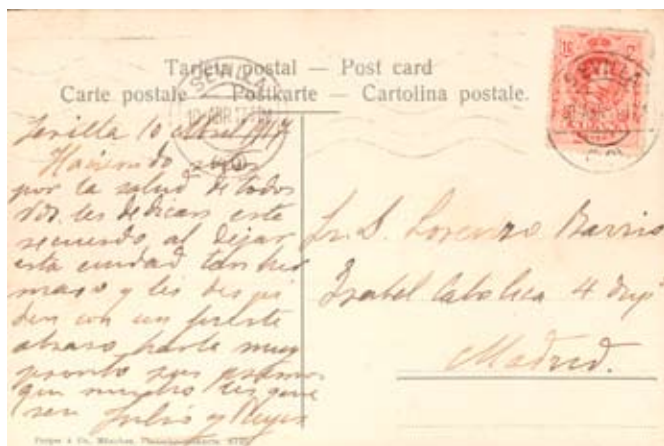 Tarjeta postal — Post card
Carte postale — Postkarte — Cartolina postale.
SEVILLA
10 ABR 17
SEVILLA
Sevilla 10 Abril 1917
Haciendo votos
por la salud de todos
Vds. les dedican este
recuerdo al dejar
esta ciudad tan her
mosa y les despi
den con un fuerte
abrazo hasta muy
pronto sus primos
que mucho les quie
ren Julio y Reyes
Sr. D. Lorenzo Barrio
Isabel Catolica 4
Madrid.